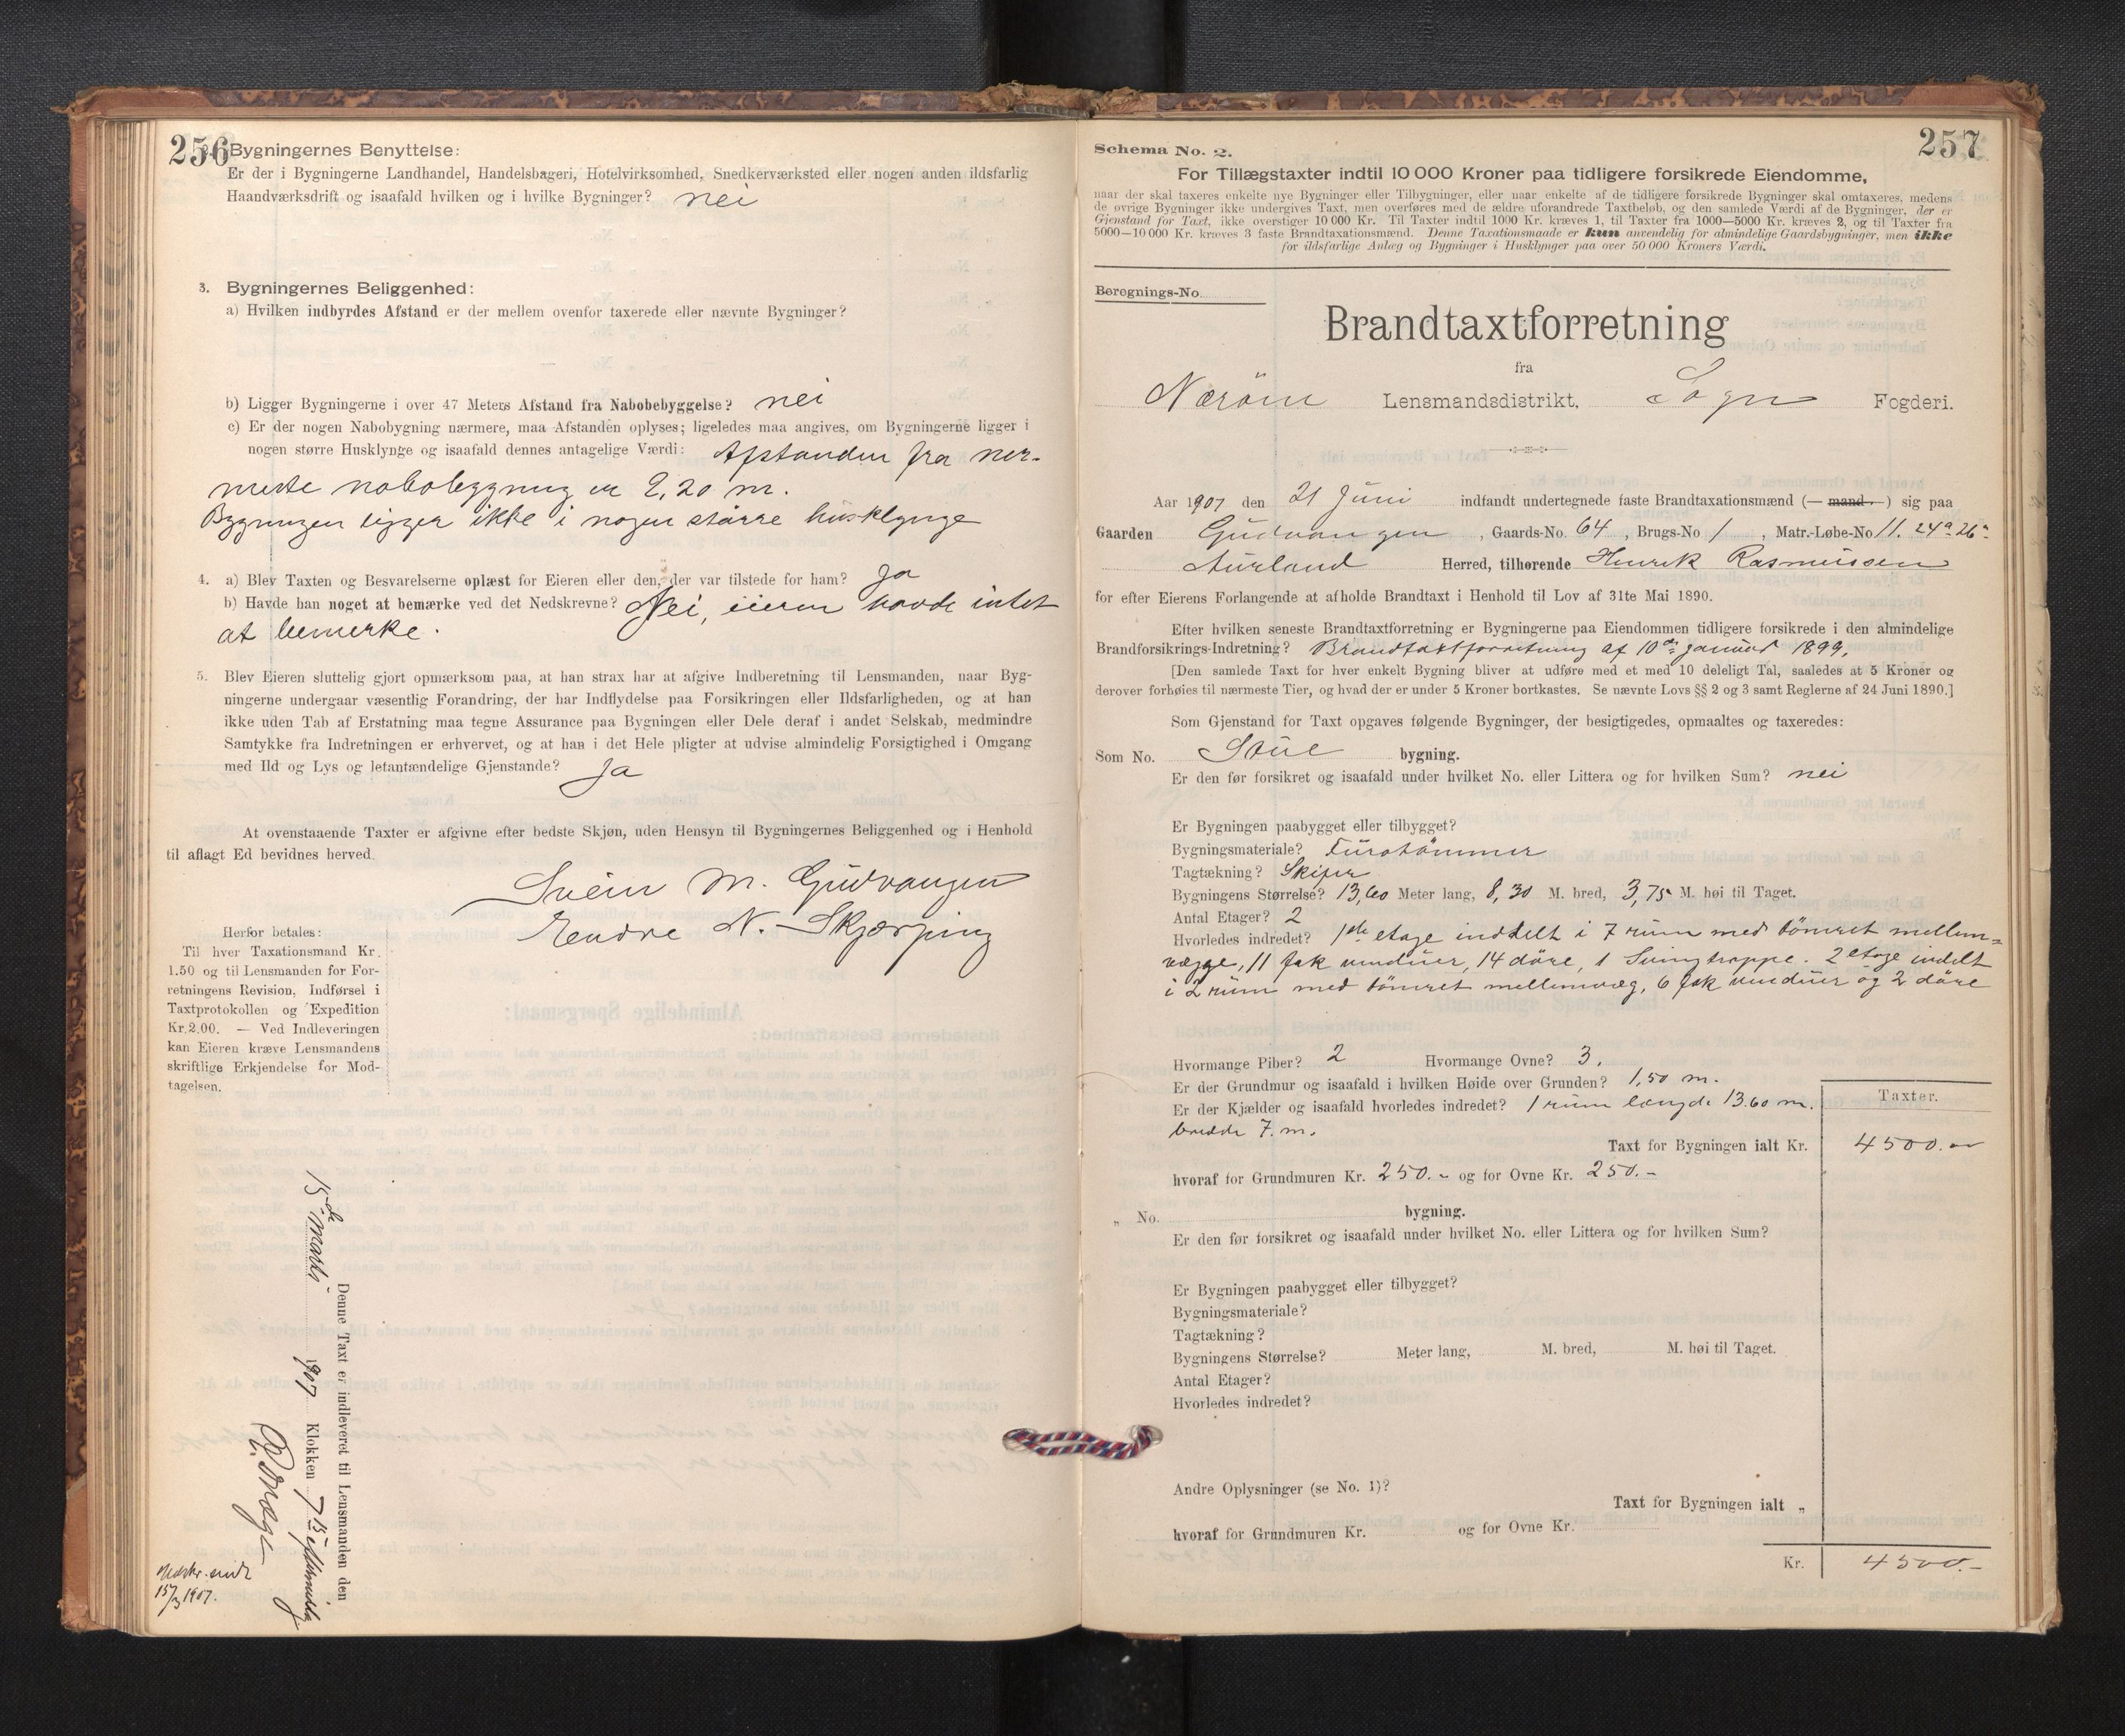 256
2. Bygningernes Benyttelse:
Er der i Bygningerne Landhandel, Handelsbageri, Hotelvirksomhed, Snedkerværksted eller nogen anden ildsfarlig
Haandværksdrift og isaafald hvilken og i hvilke Bygninger? nei
3. Bygningernes Beliggenhed:
a) Hvilken indbyrdes Afstand er der mellem ovenfor taxerede eller nævnte Bygninger?
b) Ligger Bygningerne i over 47 Meters Afstand fra Nabobebyggelse? nei
c) Er der nogen Nabobygning nærmere, maa Afstanden oplyses; ligeledes maa angives, om Bygningerne ligger i
nogen større Husklynge og isaafald dennes antagelige Værdi: Afstanden fra nær-
meste nabobygning er 2,20 m.
Bygningen ligger ikke i nogen större husklynge
4. a) Blev Taxten og Besvarelserne oplæst for Eieren eller den, der var tilstede for ham? Ja
b) Havde han noget at bemærke ved det Nedskrevne? Nei, eieren havde intet
at bemerke.
5. Blev Eieren sluttelig gjort opmærksom paa, at han strax har at afgive Indberetning til Lensmanden, naar Byg-
ningerne undergaar væsentlig Forandring, der har Indflydelse paa Forsikringen eller Ildsfarligheden, og at han
ikke uden Tab af Erstatning maa tegne Assurance paa Bygningen eller Dele deraf i andet Selskab, medmindre
Samtykke fra Indretningen er erhvervet, og at han i det Hele pligter at udvise almindelig Forsigtighed i Omgang
med Ild og Lys og letantændelige Gjenstande? Ja
At ovenstaaende Taxter er afgivne efter bedste Skjøn, uden Hensyn til Bygningernes Beliggenhed og i Henhold
til aflagt Ed bevidnes herved.
Svein M. Gudvangen
Endre N. Skjerping
Herfor betales:
Til hver Taxationsmand Kr.
1.50 og til Lensmanden for For-
retningens Revision, Indførsel i
Taxtprotokollen og Expedition
Kr. 2.00. — Ved Indleveringen
kan Eieren kræve Lensmandens
skriftlige Erkjendelse for Mod-
tagelsen.
Denne Taxt er indleveret til Lensmanden den
15de 1907 Klokken 7 15 eftermidag
15/7 1907.
257
Schema No. 2.
For Tillægstaxter indtil 10 000 Kroner paa tidligere forsikrede Eiendomme,
naar der skal taxeres enkelte nye Bygninger eller Tilbygninger, eller naar enkelte af de tidligere forsikrede Bygninger skal omtaxeres, medens
de øvrige Bygninger ikke undergives Taxt, men overføres med de ældre uforandrede Taxtbeløb, og den samlede Værdi af de Bygninger, der er
Gjenstand for Taxt, ikke overstiger 10 000 Kr. Til Taxter indtil 1000 Kr. kræves 1, til Taxter fra 1000—5000 Kr. kræves 2, og til Taxter fra
5000—10 000 Kr. kræves 3 faste Brandtaxationsmænd. Denne Taxationsmaade er kun anvendelig for almindelige Gaardsbygninger, men ikke
for ildsfarlige Anlæg og Bygninger i Husklynger paa over 50 000 Kroners Værdi.
Beregnings-No.
Brandtaxtforretning
fra
Nærönes Lensmandsdistrikt, Sogn Fogderi.
Aar 1907 den 21 Juni indfandt undertegnede faste Brandtaxationsmænd (— mand —) sig paa
Gaarden Gudvangen, Gaards-No. 64, Brugs-No 1, Matr.-Løbe-No 11. 24a 26a
Aurland Herred, tilhørende Henrik Rasmussen
for efter Eierens Forlangende at afholde Brandtaxt i Henhold til Lov af 31te Mai 1890.
Efter hvilken seneste Brandtaxtforretning er Bygningerne paa Eiendommen tidligere forsikrede i den almindelige
Brandforsikrings-Indretning? Brandtaxtforretning af 10de Januar 1899.
[Den samlede Taxt for hver enkelt Bygning bliver at udføre med et med 10 deleligt Tal, saaledes at 5 Kroner og
derover forhøies til nærmeste Tier, og hvad der er under 5 Kroner bortkastes. Se nævnte Lovs §§ 2 og 3 samt Reglerne af 24 Juni 1890.]
Som Gjenstand for Taxt opgaves følgende Bygninger, der besigtigedes, opmaaltes og taxeredes:
Som No. Stue bygning.
Er den før forsikret og isaafald under hvilket No. eller Littera og for hvilken Sum? nei
Er Bygningen paabygget eller tilbygget?
Bygningsmateriale? Furutömmer
Tagtækning? Skifer
Bygningens Størrelse? 13,60 Meter lang, 8,30 M. bred, 3,75 M. høi til Taget.
Antal Etager? 2
Hvorledes indredet? 1ste etage inddelt i 7 rum med tömret mellem-
vægge, 11 fak vinduer, 14 döre, 1 Svingtrappe. 2 etage indelt
i 2 rum med tömret mellemvæg, 6 fak vinduer og 2 döre
Hvormange Piber? 2 Hvormange Ovne? 3.
Er der Grundmur og isaafald i hvilken Høide over Grunden? 1,50 m.
Er der Kjælder og isaafald hvorledes indredet? 1 rum længde 13.60 m.
bredde 7. m.
Taxter.
Taxt for Bygningen ialt Kr. 4500.-
hvoraf for Grundmuren Kr. 250.- og for Ovne Kr. 250.-
„ No. bygning.
Er den før forsikret og isaafald under hvilket No. eller Littera og for hvilken Sum?
Er Bygningen paabygget eller tilbygget?
Bygningsmateriale?
Tagtækning?
Bygningens Størrelse? Meter lang, M. bred, M. høi til Taget.
Antal Etager?
Hvorledes indredet?
Andre Oplysninger (se No. 1)?
Taxt for Bygningen ialt „
hvoraf for Grundmuren Kr. og for Ovne Kr.
Kr. 4500.-